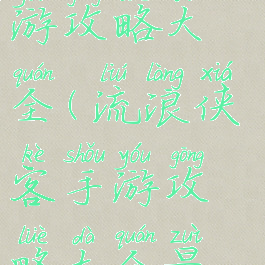 游攻略大
quán liú làng xiá
全(流浪侠
kè shǒu yóu gōng
客手游攻
lüè dà quán zuì
略大全最